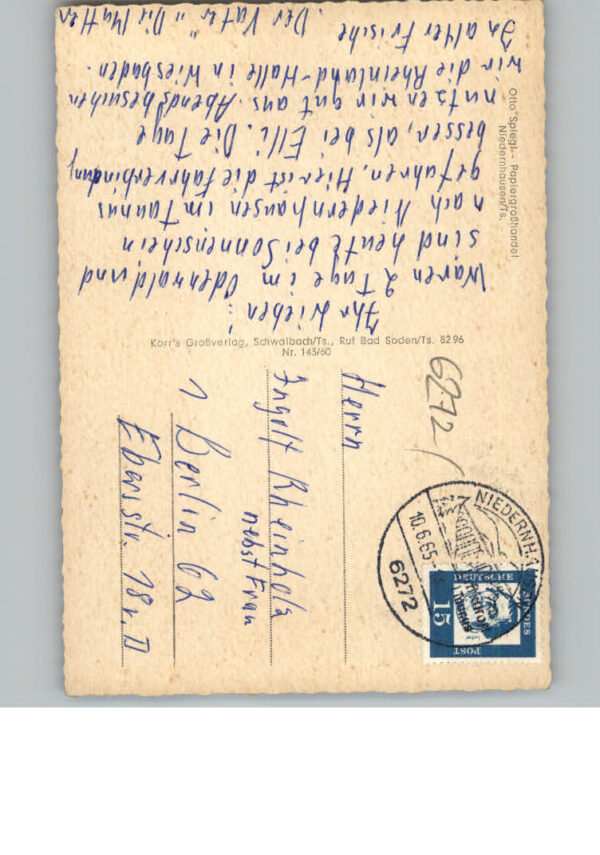 Ihr Lieben!
Waren 2 Tage im Odenwald, und
sind heute bei Sonnenschein
nach Niedernhausen im Taunus
gefahren. Hier ist die Fahrverbindung
besser, als bei Elli. Die Tage
nutzen wir gut aus. Abends besuchen
wir die Rheinland-Halle in Wiesbaden.
In alter Frische
"Der Vater" "Die Mutter
Otto Spiegl - Papiergroßhandel
Niedernhausen/Ts.
Korr's Großverlag, Schwalbach/Ts., Ruf Bad Soden/Ts. 8296
Nr. 143/60
6272
NIEDERNHA
10.6.65
6272
DEUTSCHE
BUNDES
POST
15
Herrn
Ingolf Rheinholz
nebst Frau
1 Berlin 62
Ebersstr. 18 v. II